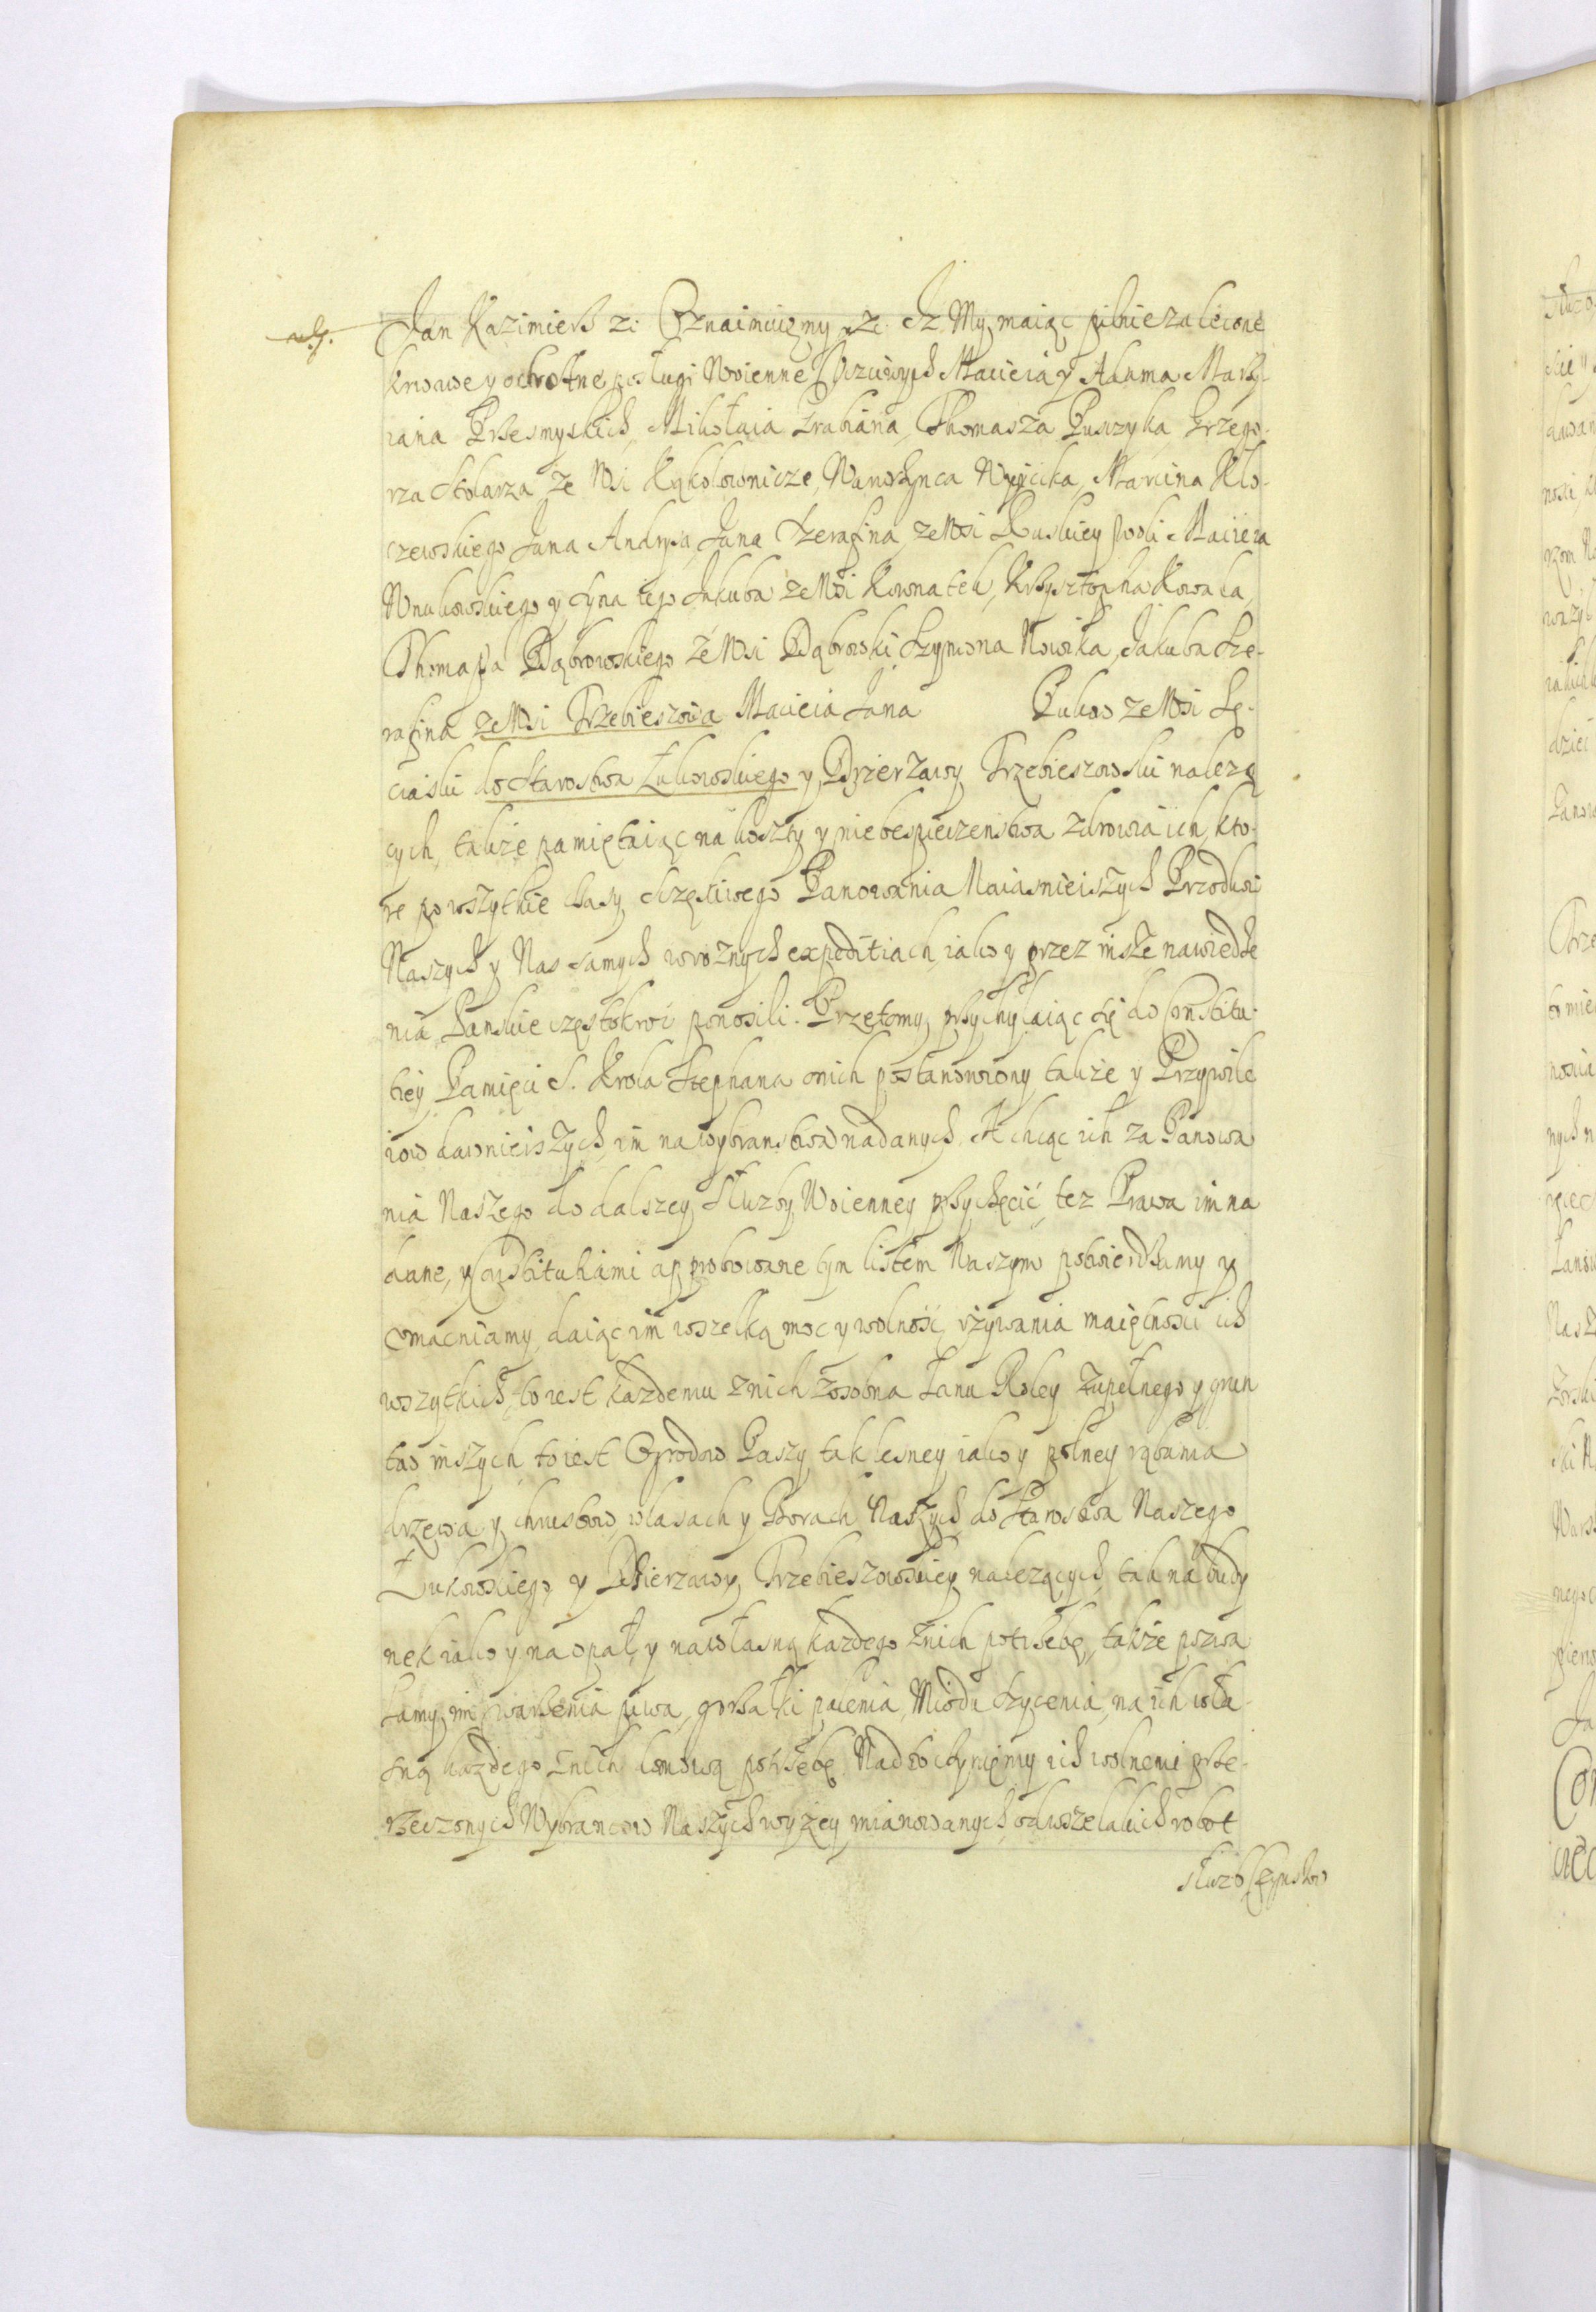 Jan Kazimierz zc. Oznaimuiemy zc. Iz My maiąc pilnie zalecone
krwawe y ochotne posługi Woienne Uczciwych Macieia y Adama
Przesmyskich, Mikołaia Grabiana, Thomasza Puszyka Grzego-
rza Stolarza ze Wsi Kąkolownicze, Wawrzynca Woycika, Marcina Kło-
czewskiego Jana Andrysa, Jana Szerafina, ze Wsi Ruskiey Woli Macieia
Wnukowskiego y syna iego Jakuba ze Wsi Kownatek, Krzysztopha Kowala,
Thomasza Dąbrowskiego ze Wsi Dąbrowki Szymona Nowika, Jakuba Sze-
rafina ze Wsi Trzebieszowa Macieia Jana ze Wsi
do Starostwa Łukowskiego y Dzierzawy Trzebieszowski należą
cych, także pamiętaiąc na koszty y niebespieczenstwa zdrowia ich, kto-
re po wszytkie czasy szczęśliwego Panowania Naiasnieiszych Przodkow
Naszych y Nas samych w roznych expeditiach, iako y przez insze nawiedze
nia Panskie częstokroć ponosili. Przeto my przychylaiąc się do Constitu-
tiey Pamięci S. Krola Stephana o nich postanowiony także y Przywile
iow dawnieiszych im na wybranstwa nadanych. A chcąc ich za Panowa
nia Naszego do dalszey służby Woienney przychęcić, tez Prawa im na
dane, y Constitutiami approbowane tym listem Naszym potwierdzamy y
zmacniamy, daiąc im wszelką moc y wolność, używania maiętności ich
wszytkich, to iest każdemu z nich zosobna Łanu Roley zupełnego y grun
tow inszych, to iest Ogrodow Paszy, tak lesney iako y polney rąbania
drzewa y chrustow w lasach y Borach Naszych do Starostwa Naszego
Łukowskiego y Dzierzawy Trzebieszowskiey należących, tak na budy
nek iako y na opał, y na własną każdego z nich potrzebę, także pozwa
lamy im warzenia piwa, gorzałki palenia, Miodu sycenia, na ich wła-
sną każdego z nich domową potrzebę. Nad to czyniemy ich wolnemi prze-
rzeczonych Wybrancow Naszych wyżey mianowanych, od wszelakich robot
służb Czynszow